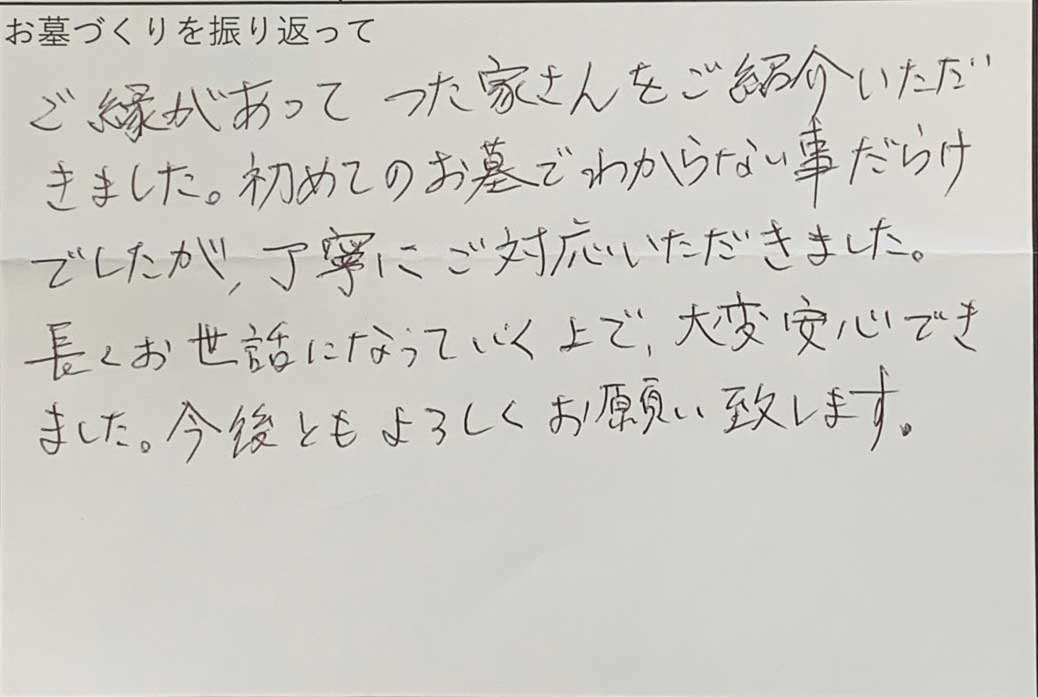 お墓づくりを振り返って
ご縁があって つた家さんをご紹介いただ
きました。初めてのお墓でわからない事だらけ
でしたが、丁寧にご対応いただきました。
長くお世話になっていく上で、大変安心でき
ました。今後ともよろしくお願い致します。